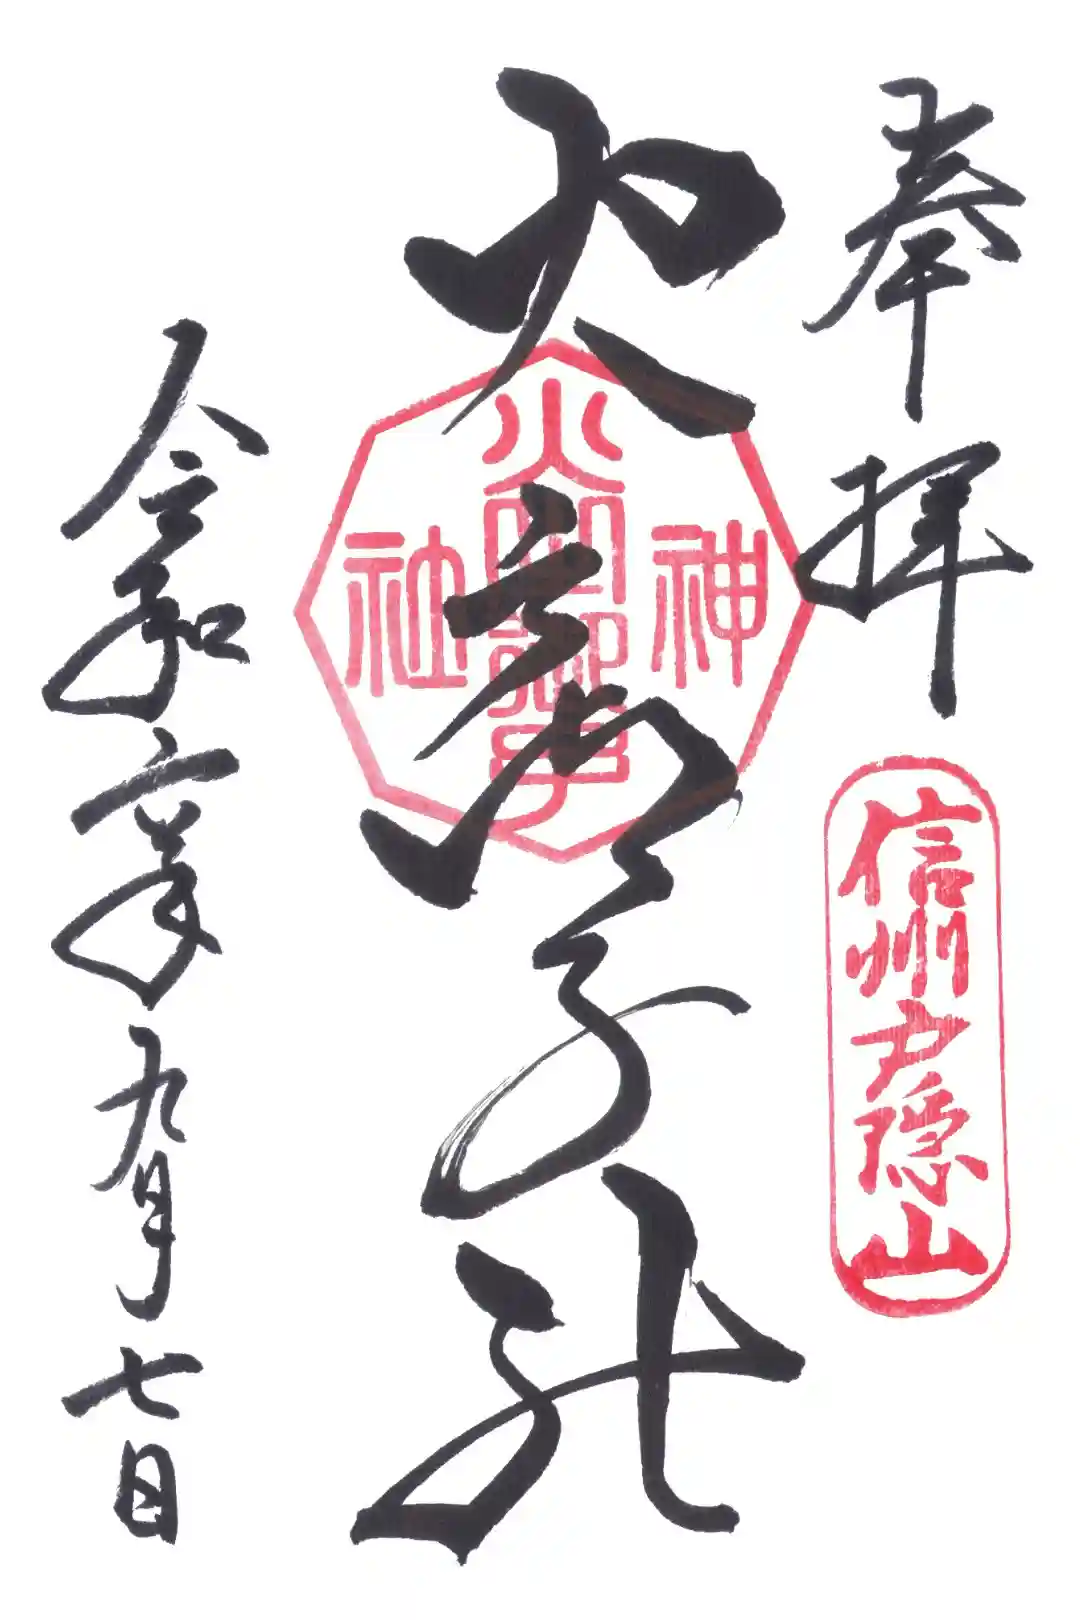 奉拝
信州戸隠山
火之御子社
火之御子
神社
令和六年九月七日